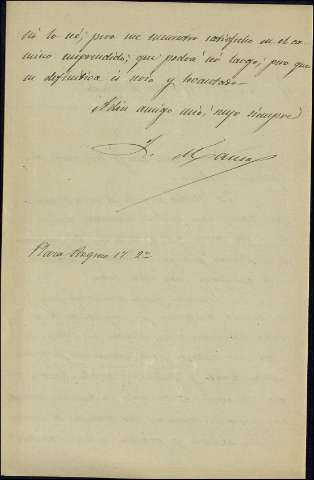 ni lo sé; pero me encuentro satisfecho en el ca-
mino emprendido; que podrá no largo, pero que
en definitiva es mio y
Adiós amigo mio; suyo siempre
Plaza Ángel 17. 2º